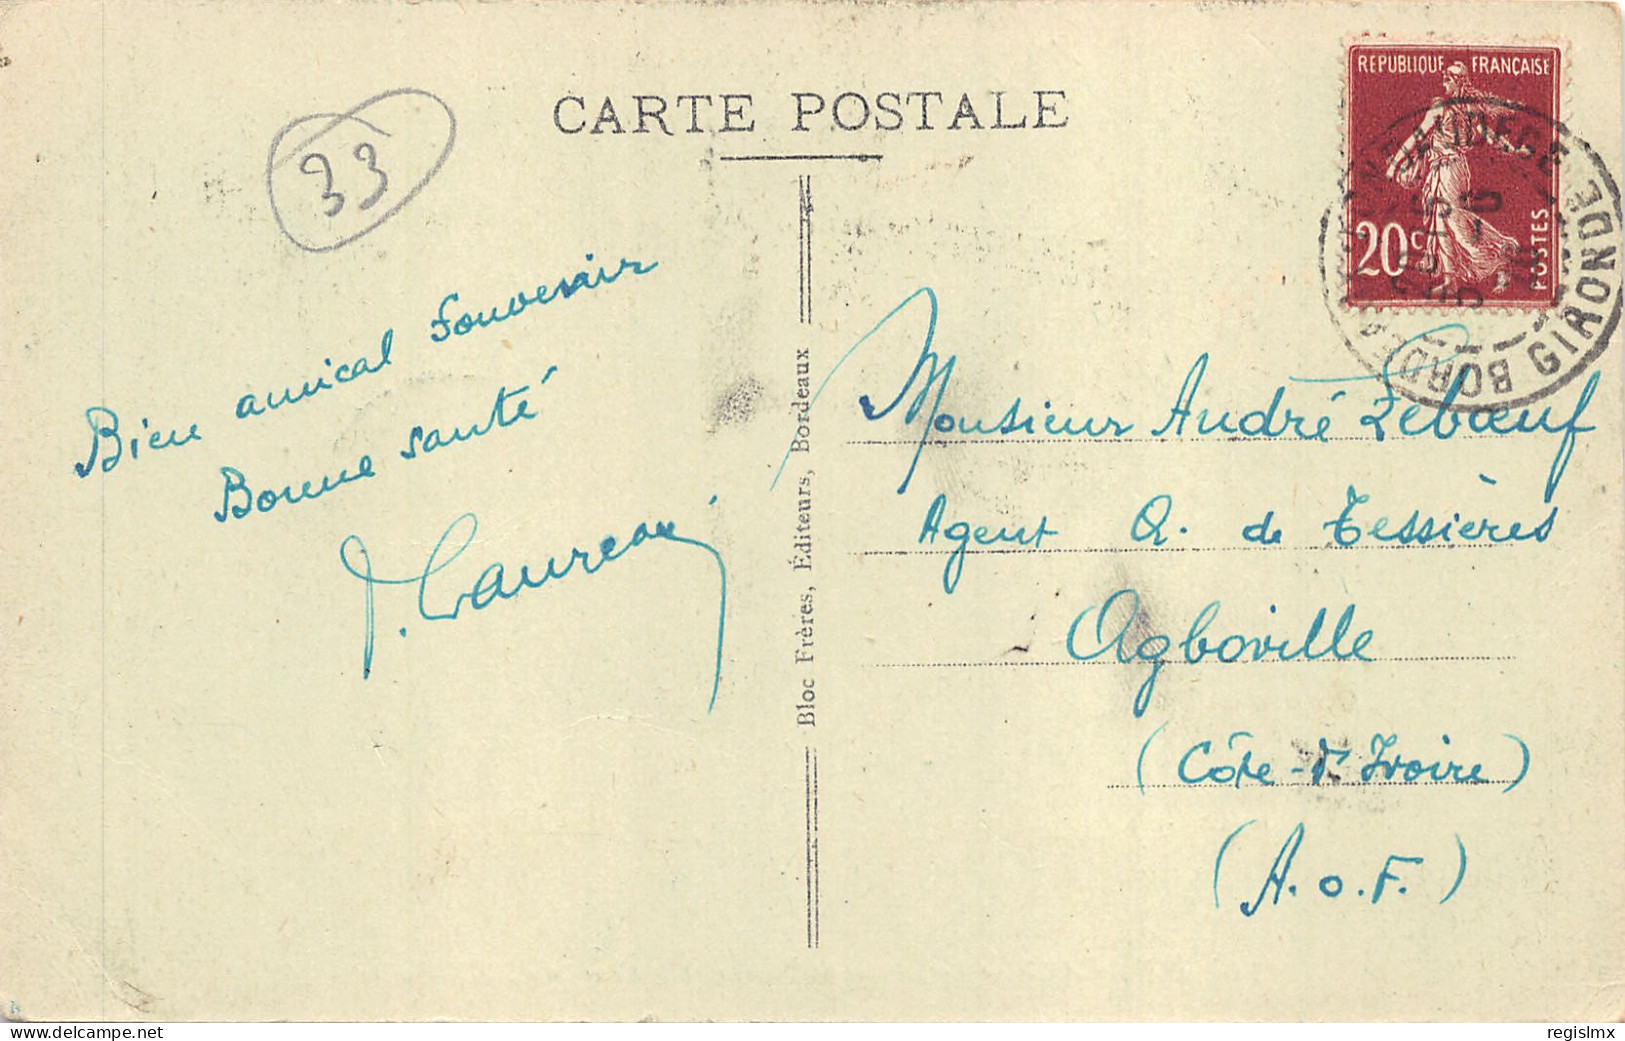 CARTE POSTALE
33
REPUBLIQUE FRANÇAISE
20c
POSTES
BORDEAUX
GIRONDE
Bien amical souvenir
Bonne santé
Bloc Frères, Éditeurs, Bordeaux
Monsieur André Lebœuf
Agent Q. de Tessières
Agboville
(Côte-d'Ivoire)
(A.O.F.)
delcampe.net
regislmx